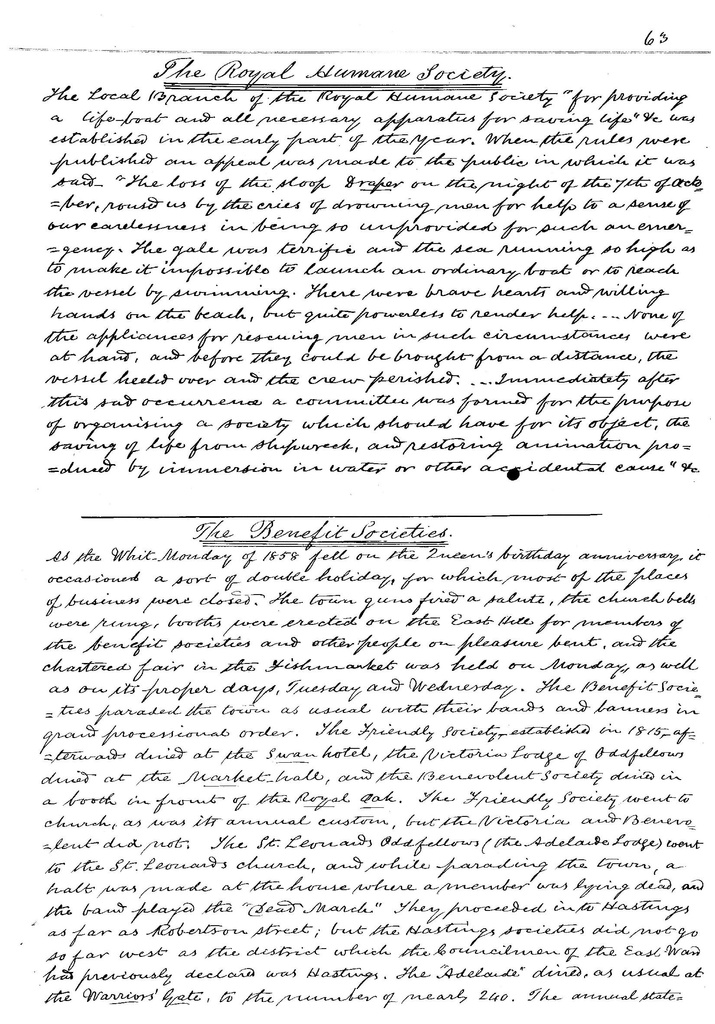 63
The Royal Humane Society.
The Local Branch of the Royal Humane Society "for providing
a life-boat and all necessary apparatus for saving life" &c was
established in the early part of the year. When the rules were
published an appeal was made to the public in which it was
said "The loss of the sloop Draper on the night of the 7th of Octo
=ber, roused us by the cries of drowning men for help to a sense of
our carelessness in being so unprovided for such an emer=
=gency. The gale was terrific and the sea running so high as
to make it impossible to launch an ordinary boat or to reach
the vessel by swimming. There were brave hearts and willing
hands on the beach, but quite powerless to render help. ... None of
the appliances for rescuing men in such circumstances were
at hand, and before they could be brought from a distance, the
vessel heeled over and the crew perished. ... Immediately after
this sad occurrence a committee was formed for the purpose
of organising a society which should have for its object, the
saving of life from shipwreck, and restoring animation pro=
=duced by immersion in water or other accidental cause" &c
The Benefit Societies.
As the Whit-Monday of 1858 fell on the Queen's birthday anniversary, it
occasioned a sort of double holiday, for which most of the places
of business were closed. The town guns fired a salute, the church bells
were rung, booths were erected on the East Hill for members of
the benefit societies and other people on pleasure bent, and the
chartered fair in the Fishmarket was held on Monday, as well
as on its proper days, Tuesday and Wednesday. The Benefit Socie=
=ties paraded the town as usual with their bands and banners in
grand processional order. The Friendly Society, established in 1815, af=
=terwards dined at the Swan hotel, the Victoria Lodge of Oddfellows
dined at the Market-hall, and the Benevolent Society dined in
a booth in front of the Royal Oak. The Friendly Society went to
church, as was its annual custom, but the Victoria and Benevo=
=lent did not. The St. Leonards Oddfellows (the Adelaide Lodge) went
to the St. Leonards church, and while parading the town, a
halt was made at the house where a member was lying dead, and
the band played the "Dead March" They proceeded into Hastings
as far as Robertson street; but the Hastings societies did not go
so far west as the district which the Councilmen of the East Ward
had previously declared was Hastings. The "Adelaide" dined, as usual at
the Warriors' Gate, to the number of nearly 240. The annual state=